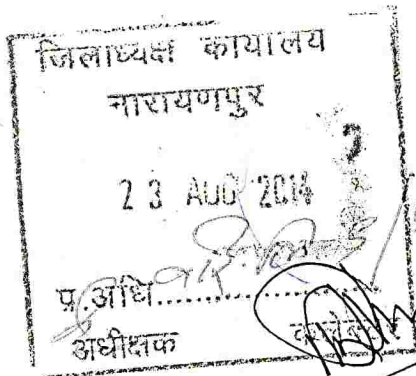 जिलाध्यक्ष कायालय
नारायणपुर
23 AUG 2014
प्र.अधि..................
अधीक्षक